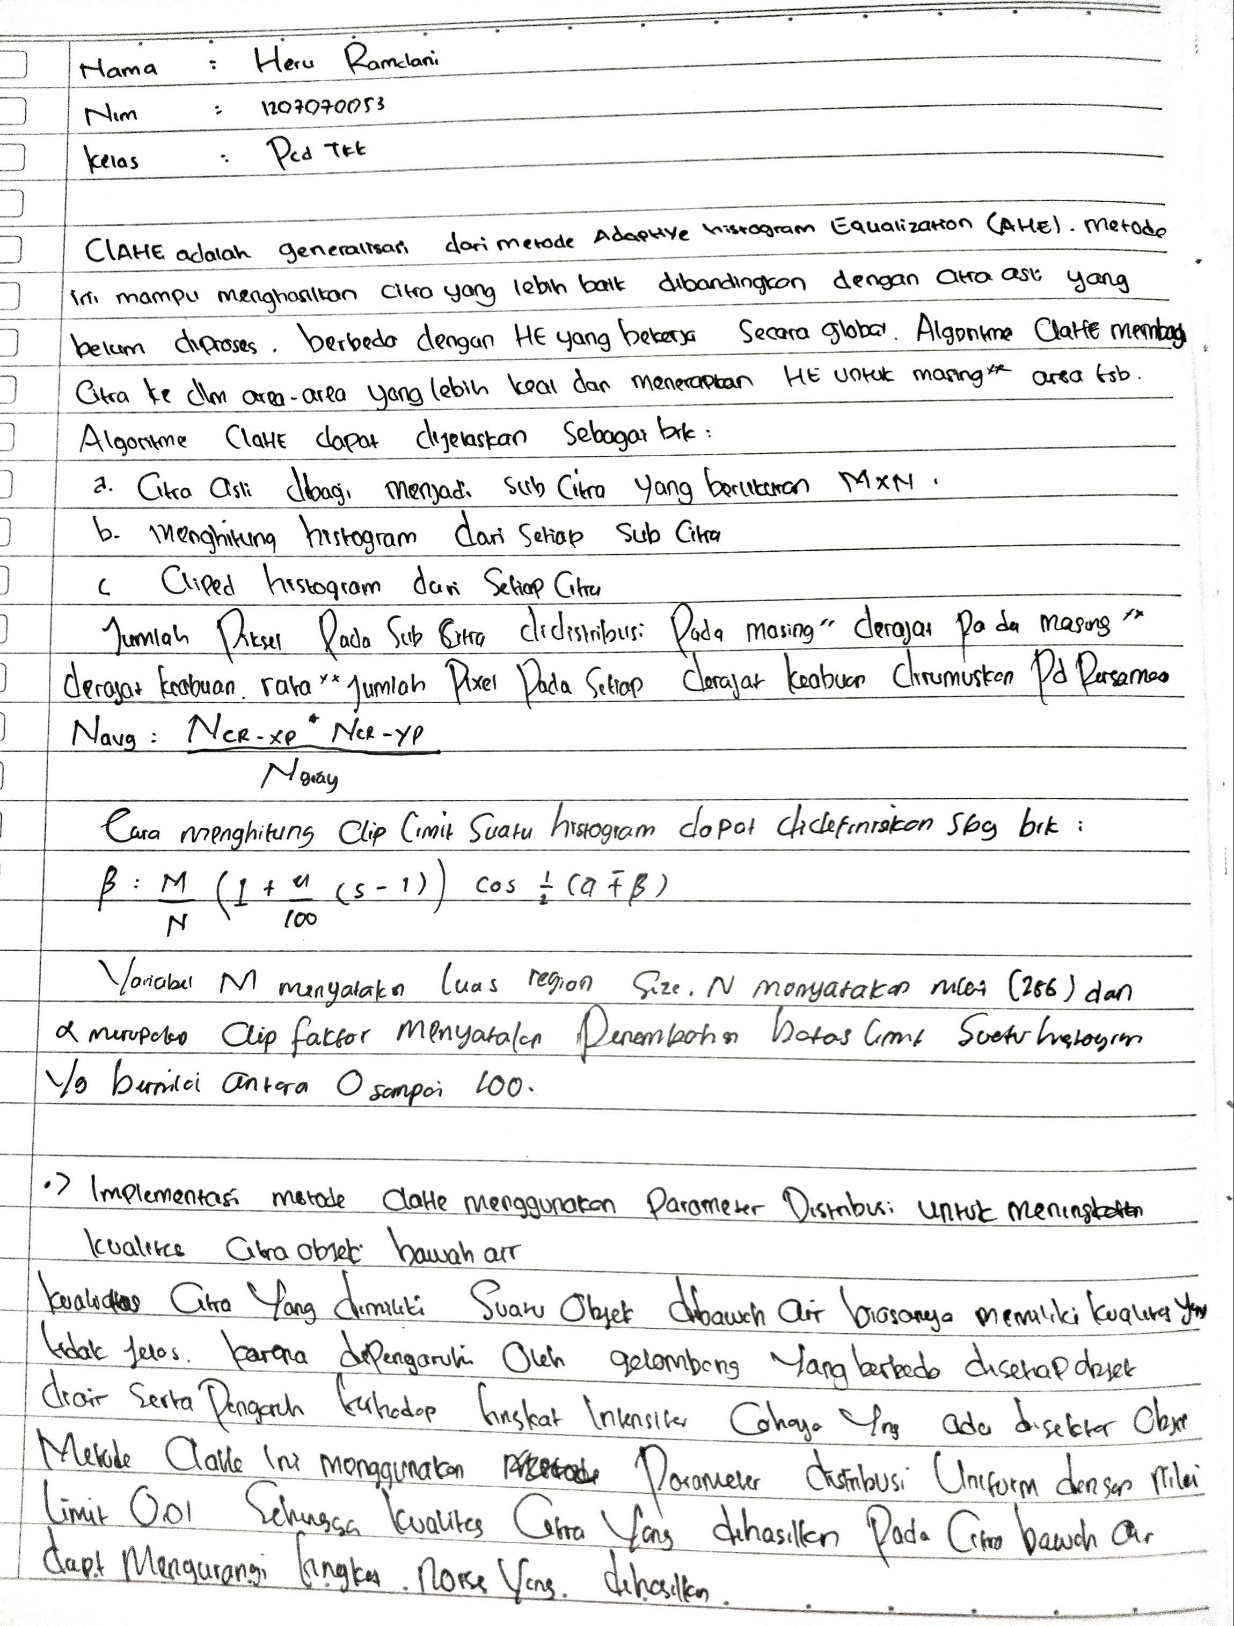 Nama : Heru Ramdani
Nim : 1207070053
Kelas : Pcd TKK
ClAHE adalah generalisasi dari metode Adaptive histogram Equalization (AHE). Metode
ini mampu menghasilkan citra yang lebih baik dibandingkan dengan citra asli yang
belum diproses. berbeda dengan HE yang bekerja Secara global. Algoritme ClaHE membagi
Citra ke dlm area-area yang lebih kecil dan menerapkan HE untuk masing" area tsb.
Algoritme ClaHE dapat dijelaskan Sebagai brk :
a. Citra Asli dibagi menjadi sub Citra yang berukuran MxN.
b. Menghitung histogram dari Setiap Sub Citra
c Cliped histogram dari Setiap Citra
Jumlah Piksel Pada Sub Citra didistribusi Pada masing" derajat pada masing"
derajat keabuan. rata" Jumlah Pixel Pada Setiap derajat keabuan dirumuskan Pd Persamaan
Navg : NCR-XP * NCR-YP
Ngray
Cara menghitung Clip Limit Suatu histogram dapat didefinisikan Sbg brk :
β : M/N (1 + α/100 (s-1)) cos 1/2 (α ∓ β)
Variabel M menyatakan luas region Size. N menyatakan nilai (256) dan
α merupakan Clip faktor menyatakan Penambahan batas limit Suatu histogram
yg bernilai antara 0 sampai 100.
•> Implementasi metode ClaHe menggunakan Parameter Distribusi untuk meningkatkan
kualitas Citra objek bawah air
kualitas Citra Yang dimiliki Suatu Objek dibawah air biasanya memiliki kualitas yang
tidak jelas. karena dipengaruhi Oleh gelombang Yang berbeda disetiap objek
diair Serta Pengaruh terhadap tingkat Intensitas Cahaya Yng ada disekitar Objek
Metode ClaHe Ini menggunakan Parameter distribusi Uniform dengan nilai
Limit 0.01 Sehingga kualitas Citra Yang dihasilkan Pada Citra bawah air
dapt Mengurangi tingkat. noise Yang. dihasilkan.